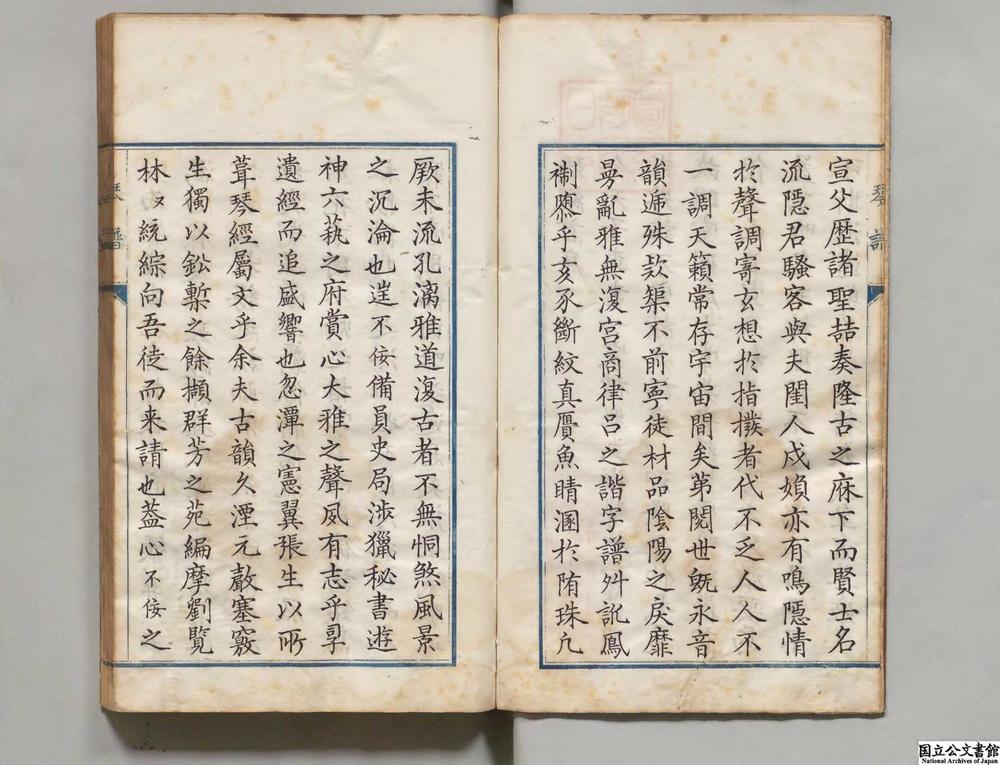 宣父歴諸聖喆奏隆古之庥下而賢士名
流隱君騷客與夫閨人戍媍亦有鳴隱情
於聲調寄玄想於指撥者代不乏人人不
一調天籟常存宇宙間矣苐閱世既永音
韻遞殊欵榘不前寧徒材品陰陽之戾靡
曼亂雅無復宮商律吕之諧字譜舛訛鳳
褵隳乎亥豕斷紋真贋魚睛溷於隋珠凢
琴譜
厥末流孔漓雅道復古者不無恫煞風景
之沉淪也逞不佞備員史局涉獵秘書遊
神六蓺之府賞心大雅之聲夙有志乎尋
遺經而追盛響也忽潭之憲翼張生以所
葺琴經屬文乎余夫古韻久湮元瞽塞竅
生獨以鉛槧之餘擷群芳之苑編摩劉覽
林々統綜向吾徒而来請也葢心不佞之
琴譜
国立公文書館
National Archives of Japan